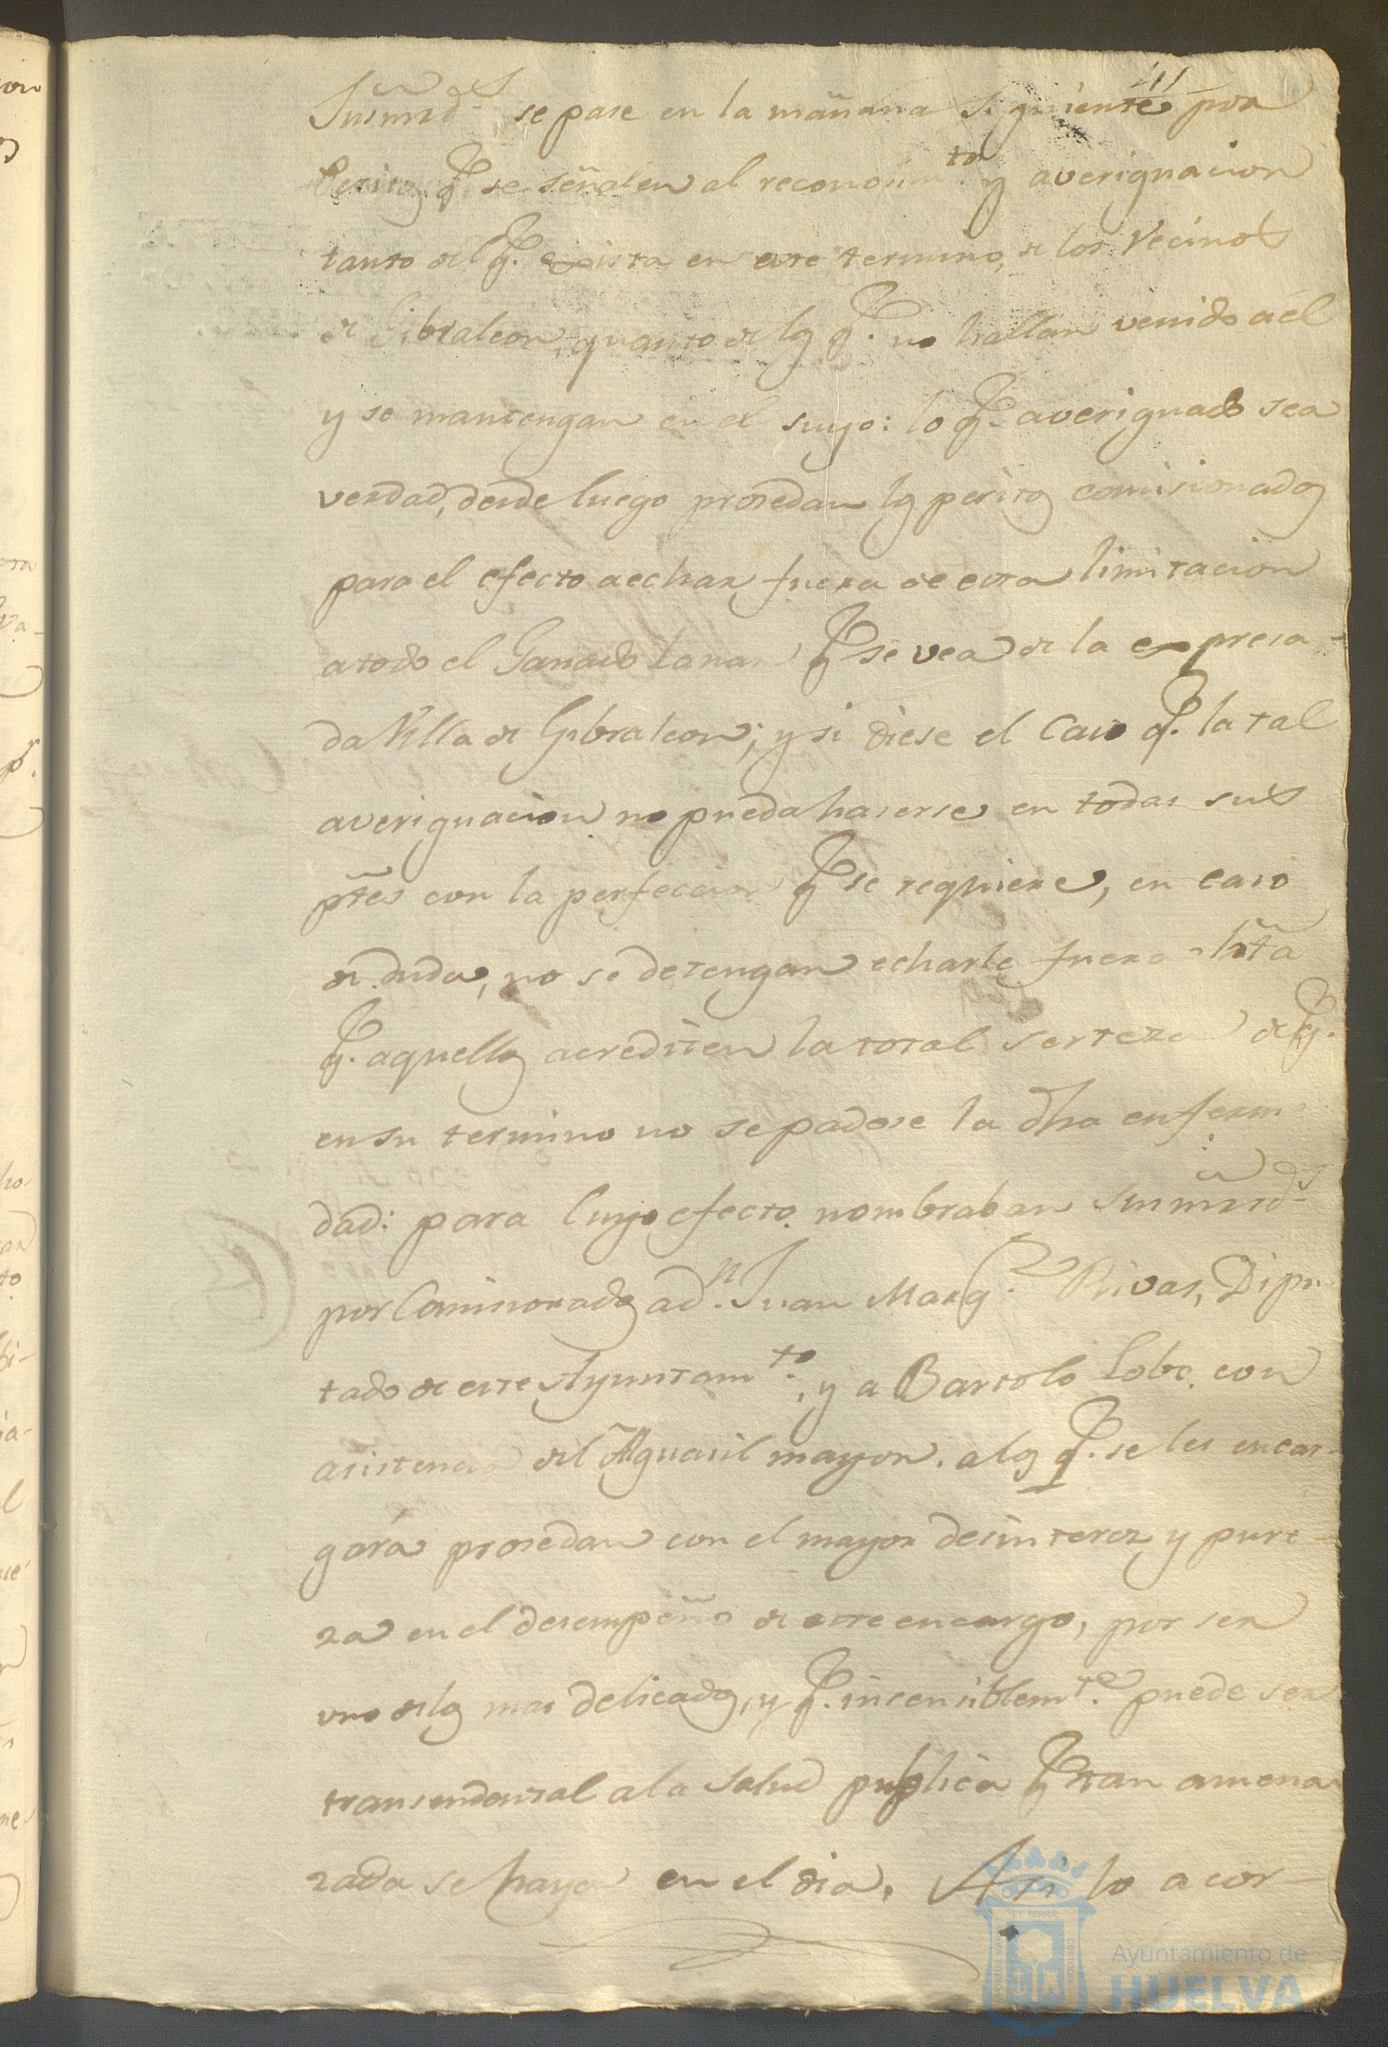 Susmrds. se pase en la mañana siguiente por
Peritos q.e se señalen al reconosim.to y averiguacion
tanto del q.e exista en este termino, de los Vecinos
de Gibraleon, quanto de los q.e no hallan venido a él
y se mantengan en el suyo: lo q.e averiguado sea
verdad, desde luego prosedan los peritos comisionados
para el efecto a echar fuera de esta limitacion
a todo el Ganado Lanar q.e se vea de la expresa-
da Villa de Gibraleon; y si diese el Caso q.e la tal
averiguacion no pueda haserse en todas sus
ptes con la perfeccion q.e se requiere, en caso
de duda, no se detengan echarle fuera hta
q.e aquellos acrediten la total serteza de q.e
en su termino no se padese la dha enferme
dad: para Cuyo efecto nombraban Susmrds.
por Comisionados a D.n Juan Marq.z Rivas, Dipu
tado de este Ayuntam.to, y a Bartolo Lobo, con
asistencia del Alguasil mayor, a los q.e se les encar-
gará prosedan con el mayor desinteres y pure-
za en el desempeño de este encargo, por ser
uno de los mas delicados, y q.e insensiblem.te puede ser
transendental a la Salud publica q.e tan amena
zada se haya en el dia. Asi lo acor-
ET TERRÆ
Ayuntamiento de
HUELVA